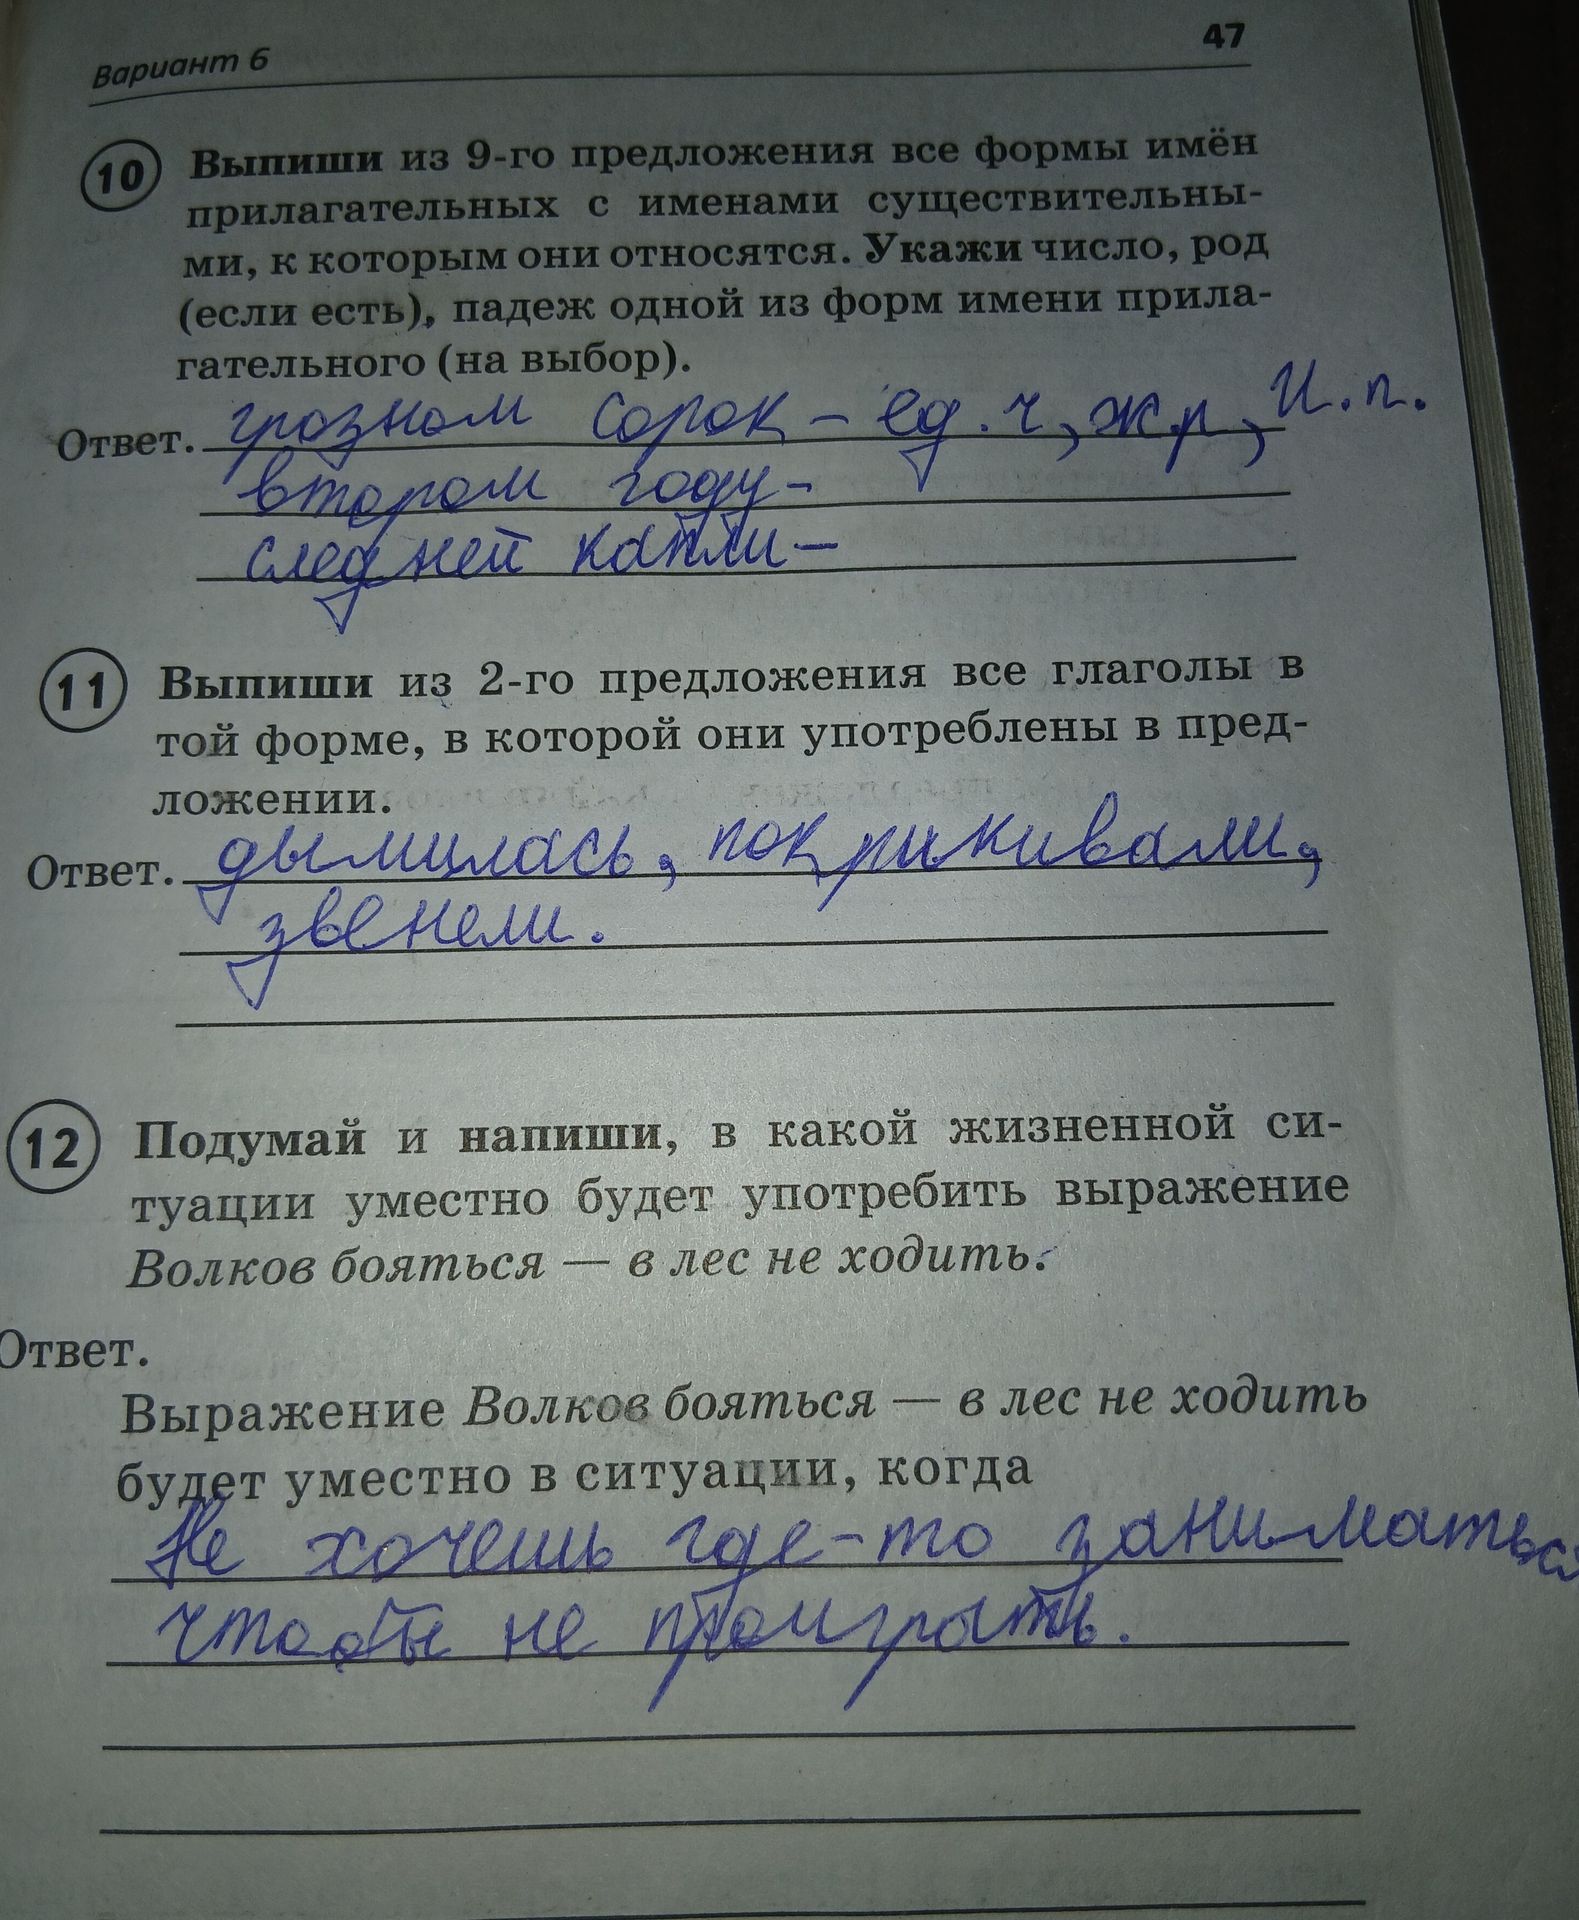 Вариант 6
47
10 Выпиши из 9-го предложения все формы имён
прилагательных с именами существительны-
ми, к которым они относятся. Укажи число, род
(если есть), падеж одной из форм имени прила-
гательного (на выбор).
Ответ. грозном сорок – ед. ч, ж.р, И. п.
втором году –
следней капли –
11 Выпиши из 2-го предложения все глаголы в
той форме, в которой они употреблены в пред-
ложении.
Ответ. дымилась, покрикивали,
звенели.
12 Подумай и напиши, в какой жизненной си-
туации уместно будет употребить выражение
Волков бояться — в лес не ходить.
Ответ.
Выражение Волков бояться — в лес не ходить
будет уместно в ситуации, когда
Не хочешь где-то заниматься
чтобы не проиграть.